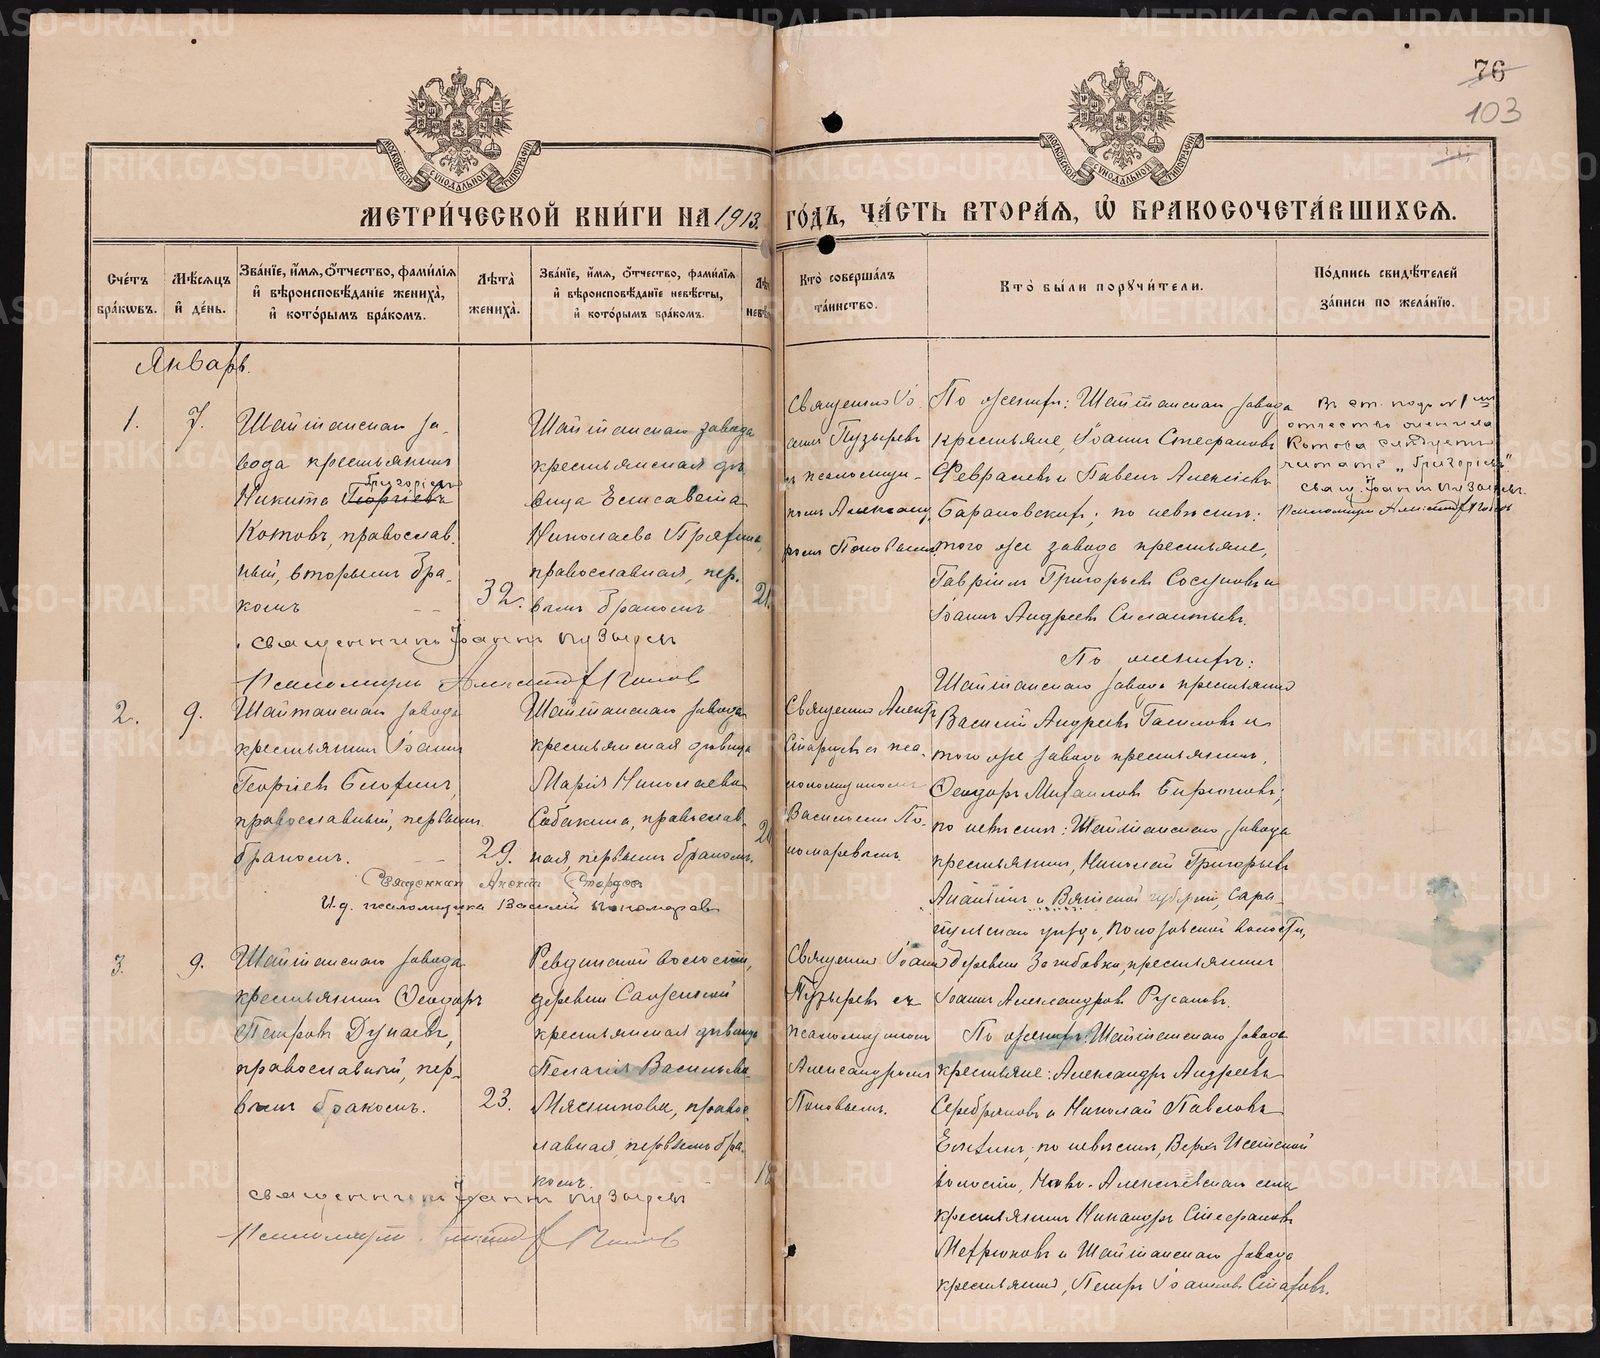 76
103
МОСКОВСКОЙ СѴНОДАЛЬНОЙ ТИПОГРАФІИ
МОСКОВСКОЙ СѴНОДАЛЬНОЙ ТИПОГРАФІИ
МЕТРИ́ЧЕСКОЙ КНИ́ГИ НА 1913. ГО́ДЪ, ЧА́СТЬ ВТОРА́Я, Ѡ҆ БРАКОСОЧЕТА́ВШИХСЯ.
Сче́тъ бра́ковъ.
Мѣ́сяцъ и҆ де́нь.
Зва́нїе, и҆́мя, ѻ҆́тчество, фами́лїя и҆ вѣроисповѣ́данїе жениха̀, и҆ кото́рымъ бра́комъ.
Лѣта̀ жениха̀.
Зва́нїе, и҆́мя, ѻ҆́тчество, фами́лїя и҆ вѣроисповѣ́данїе невѣ́сты, и҆ кото́рымъ бра́комъ.
Кто̀ соверша́лъ та́инство.
Кто̀ бы́ли порꙋчи́тели.
По́дпись свидѣ́телей за́писи по жела́нїю.
Январь.
1.
7.
Шайтанскаго за-
вода крестьянинъ
Григорьевъ
Никита Георгіевъ
Котовъ, православ-
ный, вторымъ бра-
комъ
32.
Шайтанскаго завода
крестьянская дѣ-
вица Елисавета
Николаева
православная, пер-
вымъ бракомъ
21.
Священно Іо
аннъ Пузыревъ
съ псаломщи-
комъ Александ
ромъ Поповымъ.
По женихѣ: Шайтанскаго завода
крестьяне, Іоаннъ Стефановъ
Февралевъ и Павелъ Алексіевъ
Барановскихъ; по невѣстѣ:
того же завода крестьяне,
Гавріилъ Григорьевъ Сосуновъ и
Іоаннъ Андреевъ Силантьевъ.
Въ ст. подъ №1мъ
отчество жениха
Котова слѣдуетъ
читать „Григорьевъ"
свящ. Іоаннъ Пузыревъ.
Псаломщикъ Поповъ
Священникъ Іоаннъ Пузыревъ
Псаломщикъ Александръ Поповъ
2.
9.
Шайтанскаго завода
крестьянинъ Іоаннъ
Георгіевъ
православный, первымъ
бракомъ.
29.
Шайтанскаго завода
крестьянская дѣвица
Марія Николаева
Собакина, православ-
ная, первымъ бракомъ.
Старцевъ съ пса-
ломщикомъ
Василіемъ По-
номаревымъ.
По женихѣ:
Шайтанскаго завода крестьянинъ
Василій Андреевъ Гасиловъ и
того же завода крестьянинъ,
Ѳеодоръ Михаиловъ Бирюковъ;
по невѣстѣ: Шайтанскаго завода
крестьянинъ, Николай Григорьевъ
и Вятской губерніи, Сара-
пульскаго уѣзда, волости,
деревни крестьянинъ
Іоаннъ Александровъ Русановъ.
Священникъ Старцевъ
И.д. псаломщика Василій Пономаревъ
3.
9.
Шайтанскаго завода
крестьянинъ Ѳеодоръ
Петровъ Дунаевъ,
православный, пер-
вымъ бракомъ.
23.
Ревдинской волости,
деревни
крестьянская дѣвица
Пелагія Васильева
Мясникова, правос-
лавная, первымъ бра-
комъ.
Священно Іоаннъ
Пузыревъ съ
псаломщикомъ
Александромъ
Поповымъ.
По женихѣ: Шайтанскаго завода
крестьяне: Александръ Андреевъ
Серебряковъ и Николай Павловъ
по невѣстѣ, Верхъ Исетской
волости, Ново-Алексѣевскаго села
крестьянинъ Никандръ Стефановъ
и Шайтанскаго завода
крестьянинъ, Петръ Іоанновъ
Священникъ Іоаннъ Пузыревъ
Псаломщикъ Поповъ
METRIKI.GASO-URAL.RU